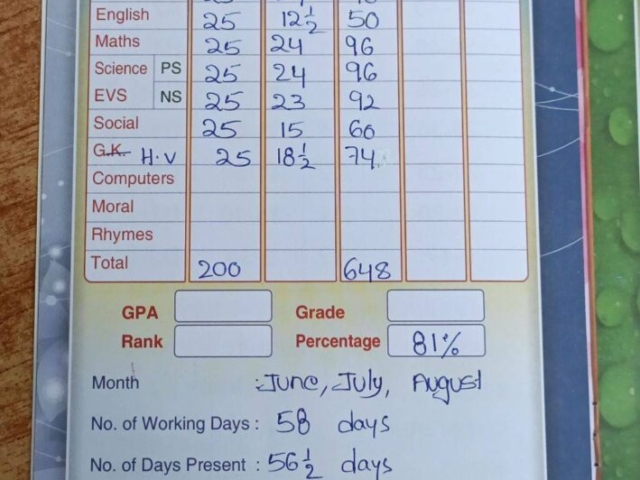 English 25 12½ 50
Maths 25 24 96
Science PS 25 24 96
EVS NS 25 23 92
Social 25 15 60
G.K. H.V 25 18½ 74
Computers
Moral
Rhymes
Total 200 648
GPA Grade
Rank Percentage 81%
Month : June, July, August
No. of Working Days : 58 days
No. of Days Present : 56½ days